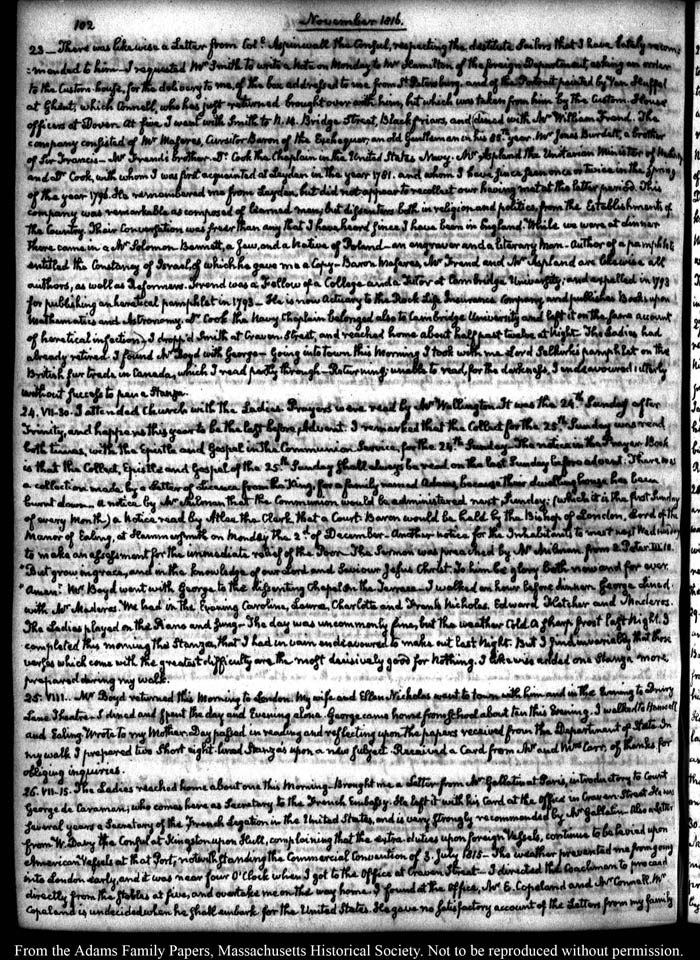 102 November 1816.
23 — There was likewise a Letter from Col.l Aspinwall the Consul, respecting the destitute Sailors that I have lately recom:
:mended to him — I requested Mr Smith to write a Note on Monday to Mr Hamilton of the foreign Department, asking an order
to the Custom-house, for the delivery to me, of the box addressed to me from St Petersburg, and of the Portrait painted by Van Huffel
at Ghent, which Connell, who has just returned brought over with him, but which was taken from him by the Custom-House
officers at Dover. At five I went with Smith to N. 14. Bridge Street, Black friars, and dined with Mr William Frend. The
company consisted of Mr Maseres, Cursitor Baron of the Exchequer, an old Gentleman in his 85th year. Mr Jones Burdett, a brother
of Sir Francis — Mr Frend's brother. Dr Cook the Chaplain in the United States Navy. Mr Aspland the Unitarian Minister of Hackney
and Dr Cook, with whom I was first acquainted at Leyden in the year 1781. and whom I have since seen once or twice in the Spring
of the year 1796. He remembered me from Leyden, but did not appear to recollect our having met at the latter period. This
company was remarkable as composed of learned men, but dissenters both in religion and politics, from the Establishments of
the Country. Their Conversation was freer than any that I have heard since I have been in England. While we were at dinner
there came in a Mr Solomon Bennett, a Jew, and a Native of Poland — an engraver and a literary Man — Author of a pamphlet
entitled the Constancy of Israel, of which he gave me a Copy — Baron Maseres, Mr Frend and Mr Aspland are likewise all
authors, as well as Reformers. Frend was a Fellow of a College and a Tutor at Cambridge University; and expelled in 1793
for publishing an heretical pamphlet in 1793 — He is now Actuary to the Rock Life Insurance Company and publishes Books upon
Mathematics and Astronomy. Dr Cook the Navy Chaplain belonged also to Cambridge University and left it on the same account
of heretical infection. I dropp'd Smith at Craven Street, and reached home about half past twelve at Night. The Ladies had
already retired. I found Mr Boyd with George — Going into town this Morning I took with me Lord Selkirk's pamphlet on the
British fur trade in Canada, which I read partly through — Returning; unable to read, for the darkness, I endeavoured utterly
without success to pen a Stanza.
24. VII-30. I attended Church with the Ladies. Prayers were read by Mr Wallington. It was the 24th Sunday after
Trinity, and happens this year to be the last before Advent. I remarked that the Collect for the 25th Sunday was read
both times, with the Epistle and Gospel in the Communion Service, for the 24th Sunday. The notice in the Prayer Book
is that the Collect, Epistle and Gospel of the 25th Sunday shall always be read on the last Sunday before advent. There was
a collection made by a Letter of License from the King, for a family named Adams, because their dwelling house has been
burnt down — a notice by Mr Milman that the Communion would be administered next Sunday; (which is the first Sunday
of every Month) a Notice read by Atlee the Clerk, that a Court-Baron would be held by the Bishop of London, Lord of the
Manor of Ealing, at Hammersmith on Monday the 2d of December — Another notice for the Inhabitants to meet next Wednesday
to make an assessment for the immediate relief of the Poor. The Sermon was preached by Mr Milman from 2 Peter III. 18.
"But grow in grace, and in the knowledge of our Lord and Saviour Jesus Christ. To him be glory both now and for ever.
"Amen." Mr Boyd went with George to the dissenting Chapel on the Terrace — I walked an hour before dinner. George dined
with Mr Maderos. We had in the Evening Caroline, Laura, Charlotte and Frank Nicholas, Edward Fletcher and Maderos.
The Ladies played on the Piano and Sung — The day was uncommonly fine, but the weather Cold. A sharp frost last Night. I
completed this morning this Stanza, that I had in vain endeavoured to make out last Night. But I find invariably that those
verses which come with the greatest difficulty are the most decisively good for Nothing. I likewise added one Stanza more,
prepared during my walk.
25. VIII. — Mr Boyd returned this Morning to London. My wife and Ellen Nicholas went to town with him and in the Evening to Drury
Lane Theatre — I dined and spent the day and Evening alone. George came home from School about ten this Evening. I walked to Hanwell
and Ealing. Wrote to my Mother. Day passed in reading and reflecting upon the papers received from the Department of State. In
my walk I prepared two Short eight-lined Stanzas upon a new subject. Received a Card from Mr and Mrs Carr, of thanks for
obliging inquiries.
26. VII-15. The Ladies reached home about one this Morning. Brought me a Letter from Mr Gallatin at Paris, introductory to Count
George de Caraman; who comes here as Secretary to the French Embassy. He left it with his Card at the Office in Craven Street. He was
several years a Secretary of the French Legation in the United States, and is very strongly recommended by Mr Gallatin. Also a Letter
from W. Davy the Consul at Kingston upon Hull, complaining that the extra-duties upon foreign Vessels, continue to be levied upon
American Vessels at that Port, notwithstanding the Commercial Convention of 3. July 1815 — The weather prevented me from going
into London early, and it was near four O'Clock when I got to the Office at Craven Street — I directed the Coachman to proceed
directly from the Stables at five, and overtake me on the way home. I found at the Office, Mr E. Copeland and Mr Connell. Mr
Copeland is undecided when he shall embark for the United States. He gave no satisfactory account of the Letters from my family
From the Adams Family Papers, Massachusetts Historical Society. Not to be reproduced without permission.